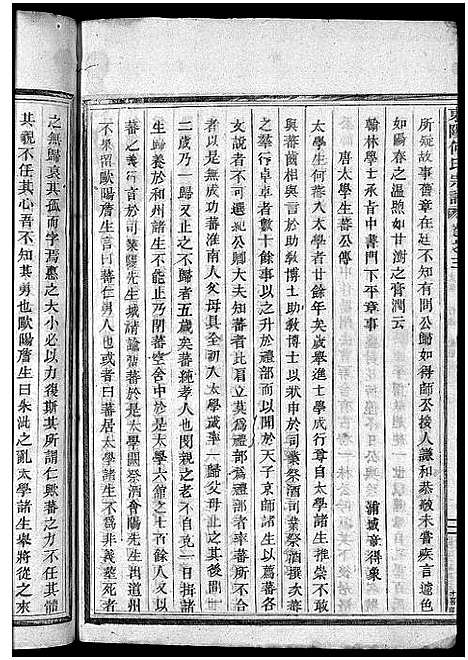 東陽何氏宗譜
所疑故事舊章在廷則有問公歸如得師丕接人謙和恭敬未嘗疾言遽色
如陽春之溫煦如甘澍之膏潤云
翰林學士承旨中書門下平章事
浦城章得象
唐太學生蕃公傳
太學生何蕃入太學者廿餘年矣歲舉進士學成行尊自太學諸生推崇不敢
與蕃齒相與言於助教博士助教博士以狀申於司業祭酒司業祭酒撰次蕃
之羣行卓卓者數十餘事以之升於禮部而以聞於天子京師諸生以蕃名
文說者不可選紀公卿大夫知蕃者比肩立莫為禮部為禮部者率蕃所不
合者以是無成功蕃淮南人父母具全初入太學歲率一歸父母止之其後間一
二歲乃一歸又止之不歸者五歲矣蕃純孝人也閔親之老不自克一日揖諸
生歸養於和州諸生不能止乃閉蕃空舍中於是太學六館之士百餘人又以
蕃之義行言於司業陽先生城請諭留蕃於是太學闕祭酒會陽先生出道州
不果留歐陽詹生言曰蕃仁勇人也或者曰蕃居太學諸生不為非義葬死者
之無歸哀其孤而字焉惠之大小必以力復斯其所謂仁歟蕃之力不任其體
其貌不任其心吾不知其勇也歐陽詹生曰朱泚之亂太學諸生舉將從之來